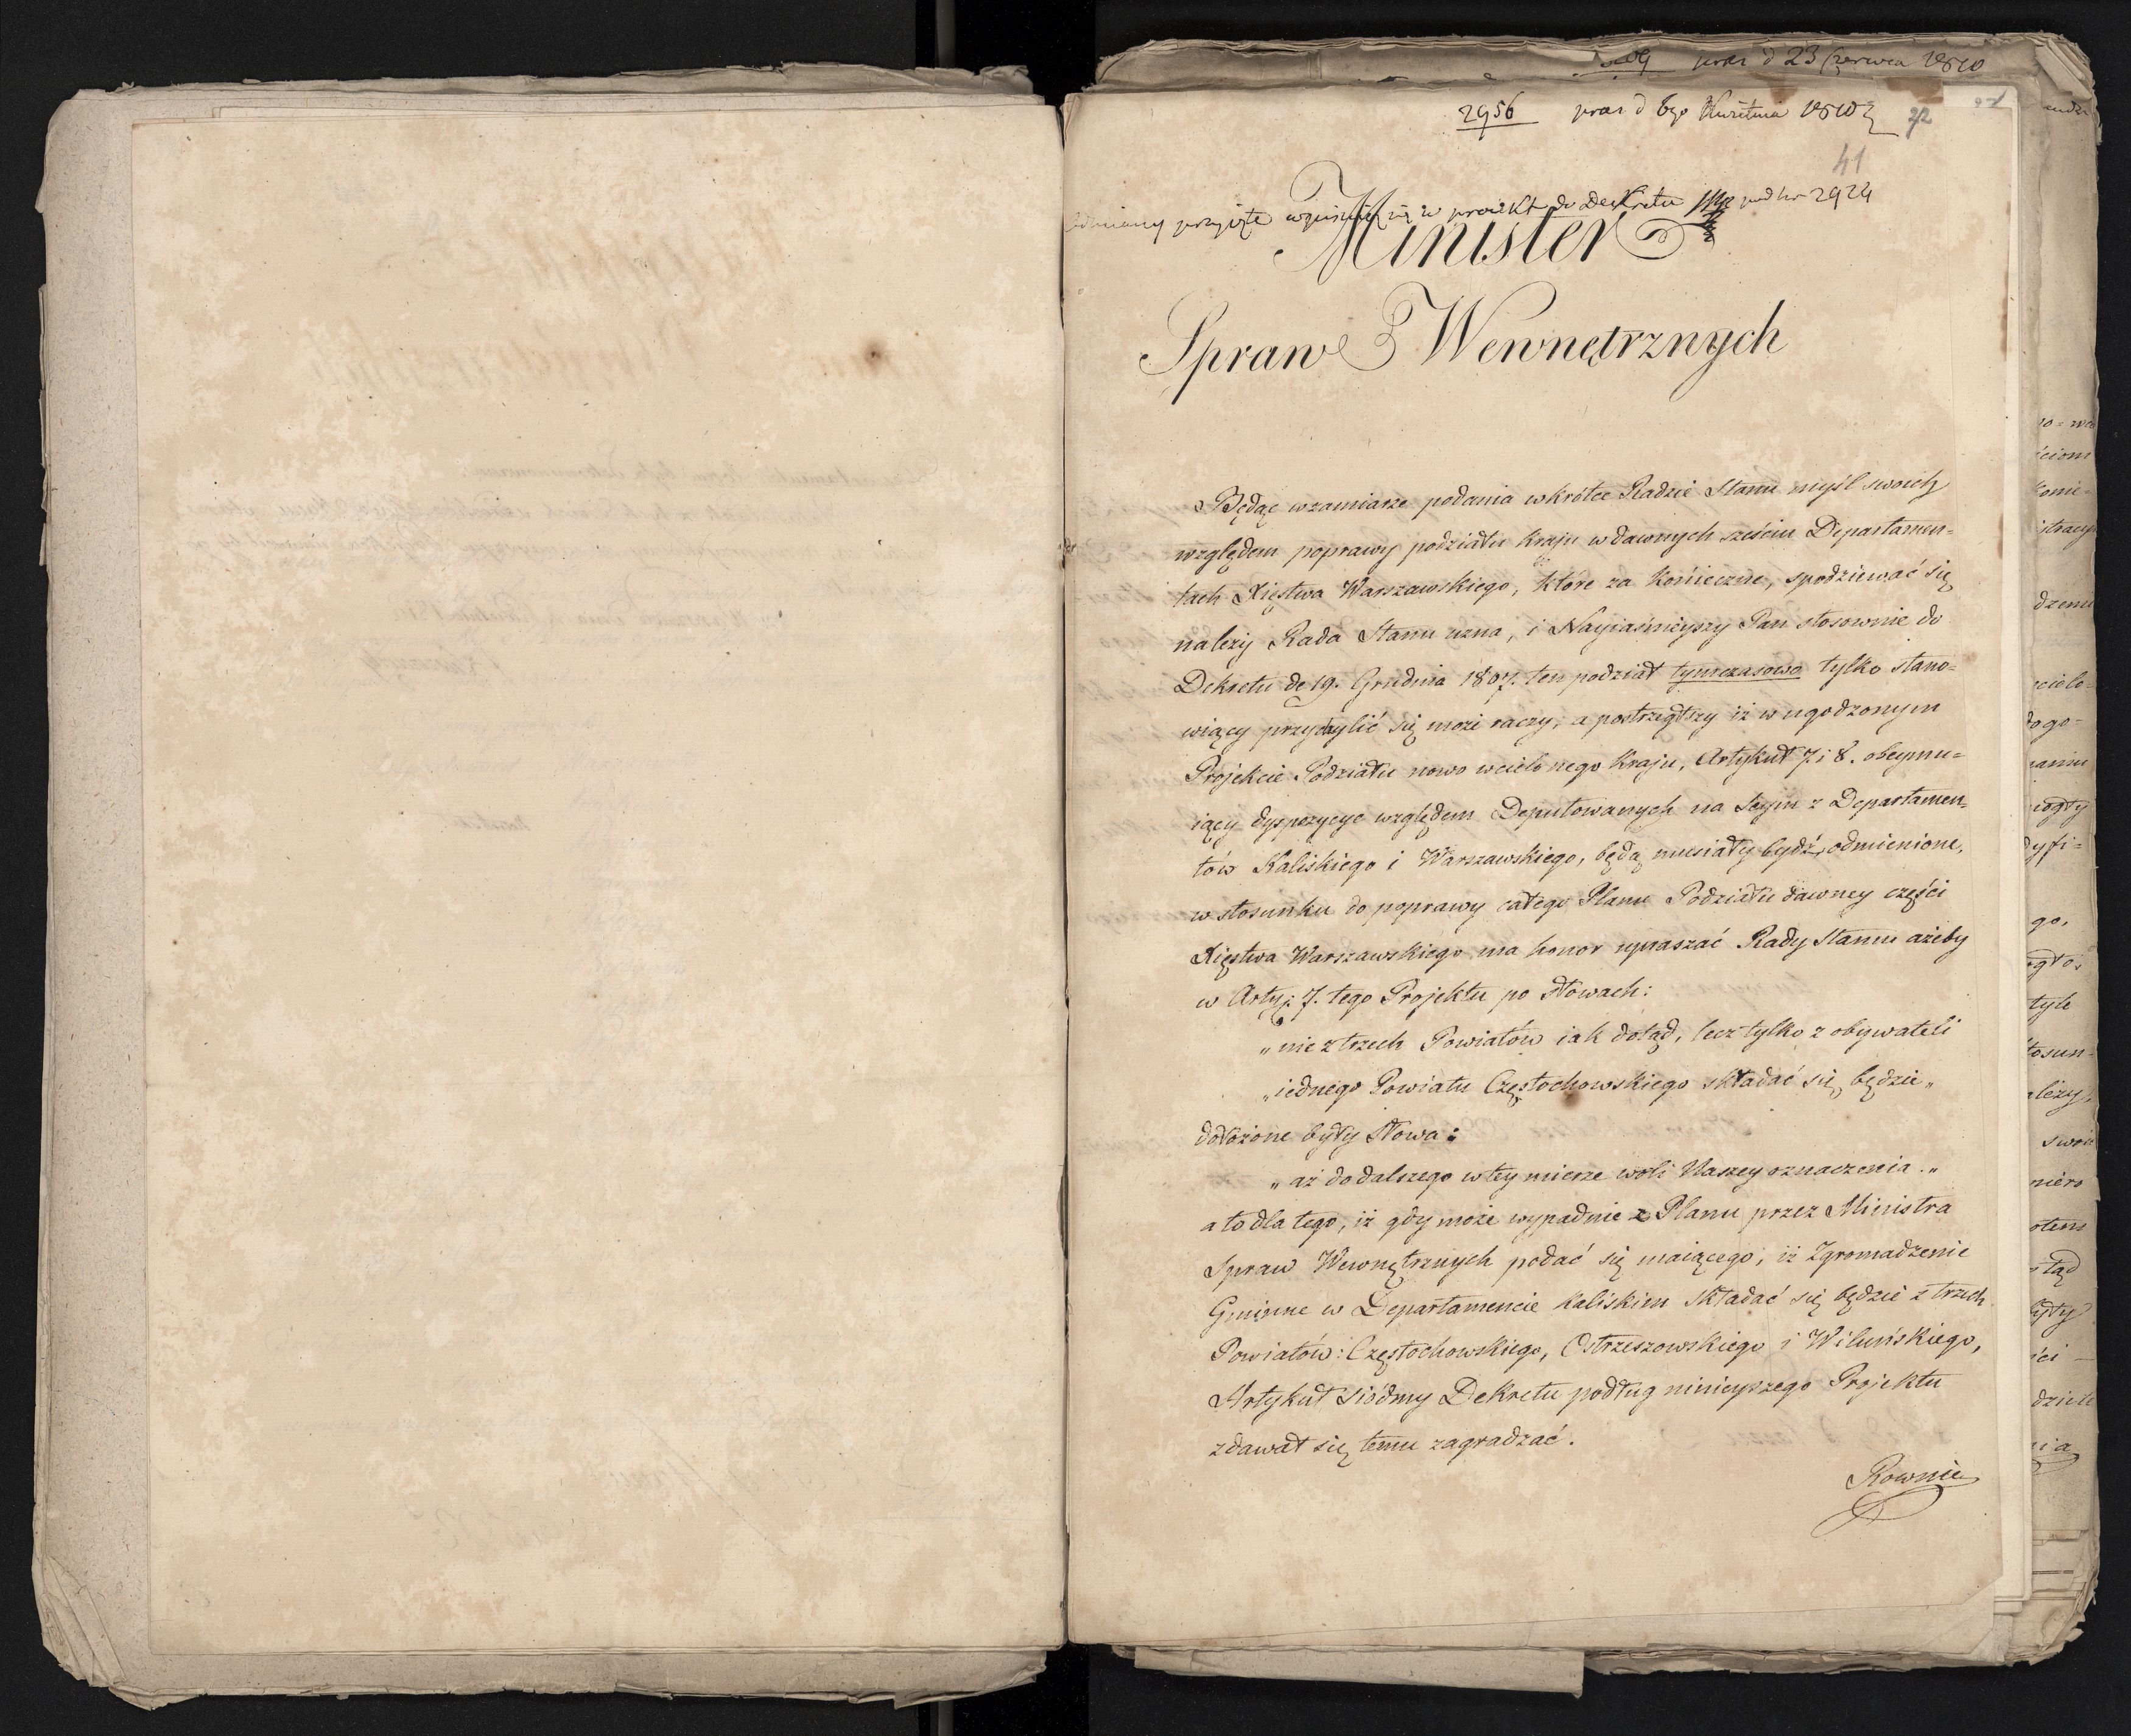 pras d 23 Czerwca 1810
2956 pras d 6go Kwietnia 1810
32
41
odmiany przyięte wpisuią się w proiekt do Dekretu pod Nro 2924
Minister
Spraw Wewnętrznych
Będąc wzamiarze podania wkrótce Radzie Stanu myśl swoich
względem poprawy podziału kraju w dawnych sześciu Departamen=
tach Xięstwa Warszawskiego, które za konieczne, spodziewać się
należy Rada Stanu uzna, i Nayiaśnieyszy Pan stosownie do
Dekretu de 19. Grudnia 1807. ten podział tymczasowo tylko stano=
wiący przychylić się może raczy, a postrzegłszy iż w ugodzonym
Projekcie Podziału nowo wcielonego kraju, Artykuł 7. i 8. obeymu=
iący dyspozycye względem Deputowanych na Seym z Departamen=
tów Kaliskiego i Warszawskiego, będą musiały bydź odmienione,
w stosunku do poprawy całego Planu Podziału dawney części
Xięstwa Warszawskiego ma honor upraszać Rady Stanu ażeby
w Arty: 7. tego Projektu po słowach:
„nie z trzech Powiatów iak dotąd, lecz tylko z obywateli
„iednego Powiatu Częstochowskiego składać się będzie„
dołożone były słowa:
„aż do dalszego wtey mierze woli Naszey oznaczenia.„
a to dla tego, iż gdy może wypadnie z Planu przez Ministra
Spraw Wewnętrznych podać się maiącego, iż Zgromadzenie
Gminne w Departamencie Kaliskim składać się będzie z trzech
Powiatów: Częstochowskiego, Ostrzeszowskiego i Wiluńskiego,
Artykuł siódmy Dekretu podług ninieyszego Projektu
zdawał się temu zagradzać.
Rownie